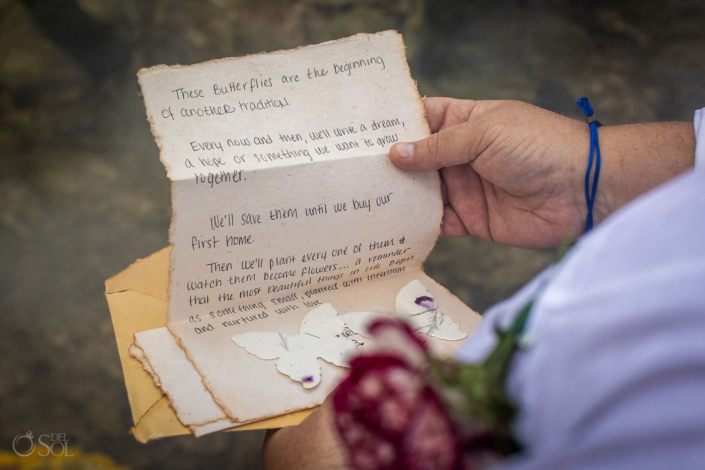 These Butterflies are the beginning
of another tradition.
Every now and then, we'll write a dream,
a hope or something we want to grow
together.
We'll save them until we buy our
first home.
Then we'll plant every one of them &
watch them become flowers... a reminder
that the most beautiful things in life begin
as something small, planted with intention
and nurtured with love
DEL
SOL